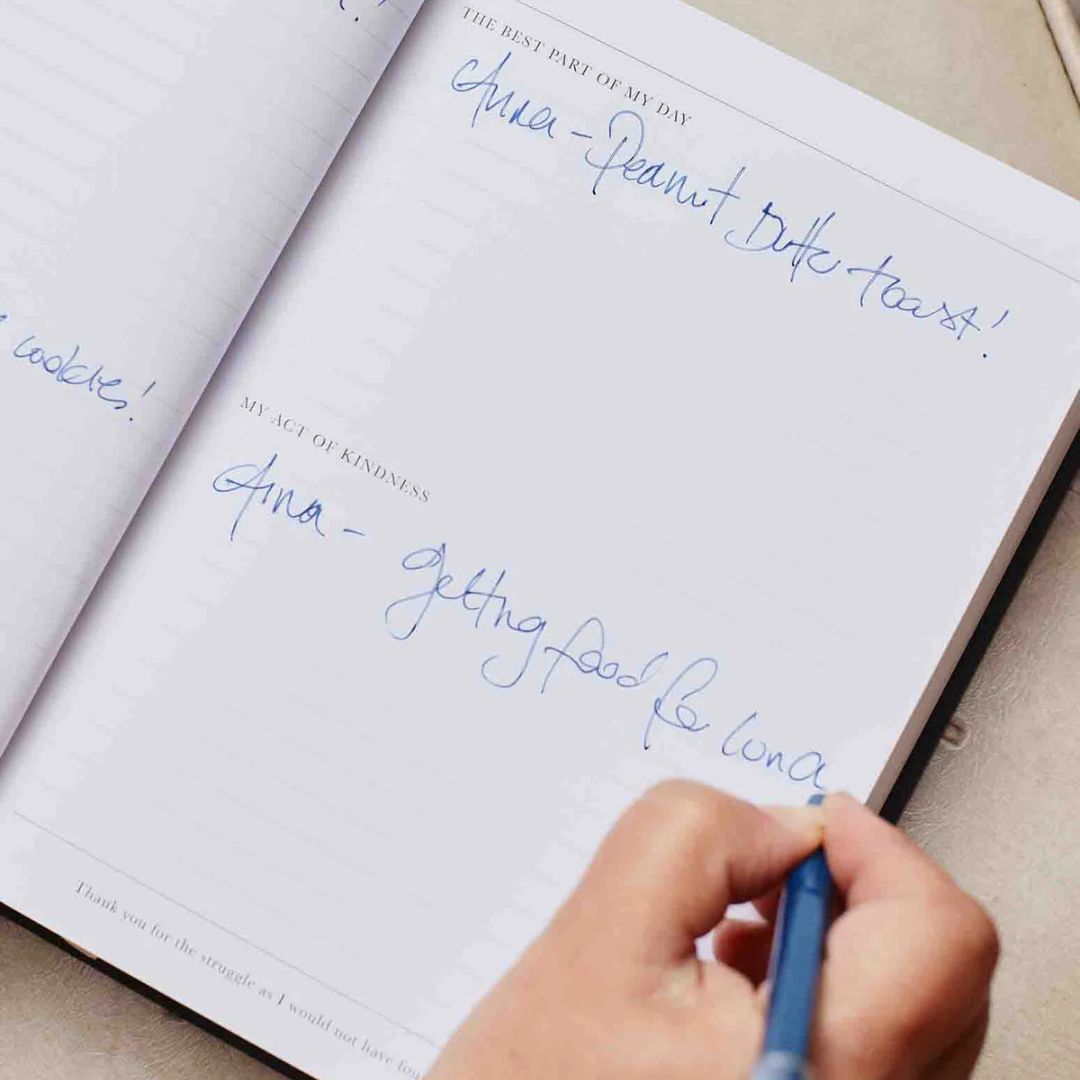 cookies!
THE BEST PART OF MY DAY
Anna - Peanut Butter toast!
MY ACT OF KINDNESS
Anna - getting food for Luna
Thank you for the struggle as I would not have